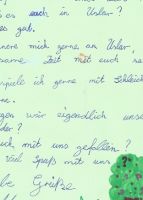 es euch in Uslar?
es gut.
nere mich gerne an Uslar,
same Zeit mit euch
spiele ich gerne mit Schleich
en.
gen wir eigendlich unse
der?
uch mit uns gefallen?
viel Spaß mit uns
be Grüße